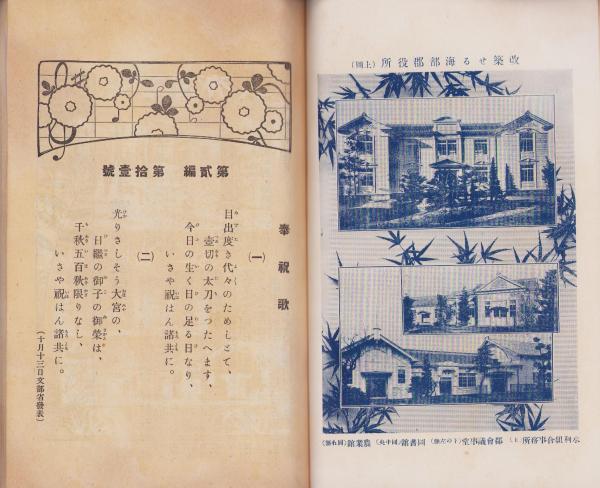 改築せる海部郡役所（上圖）
水利組合事務所（上） 郡會議事堂（下の左端） 圖書館（圖中央） 農業館（圖右端）
第貳編　第拾壹號
奉祝歌
（一）
目出度き代々のためしとて、
壺切の太刀をつたへます、
今日の生く日の足る日なり、
いさや祝はん諸共に。
（二）
光りさしそう大宮の、
日繼の御子の御榮は、
千秋五百秋限りなし、
いさや祝はん諸共に。
（十月十三日文部省發表）